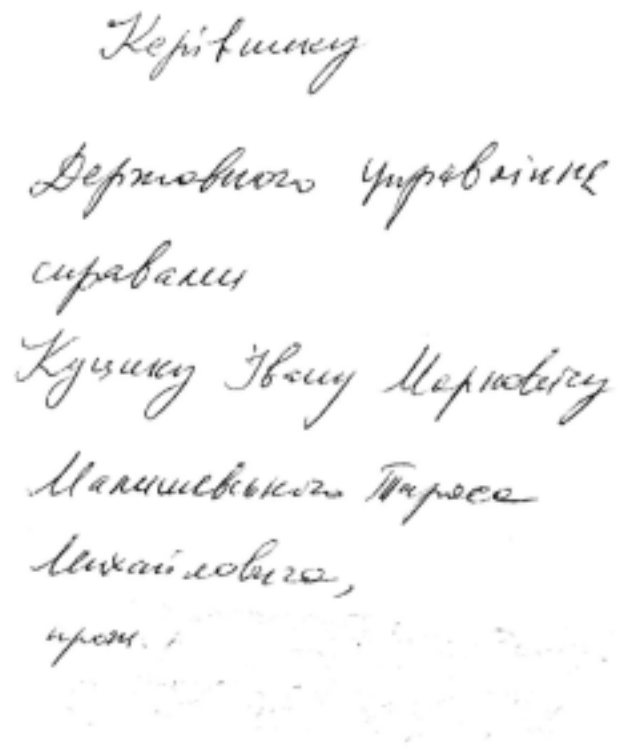 Керівнику
Державного управління
справами
Куцику Івану Марковичу
Малишевського Тараса
Михайловича,
прож.